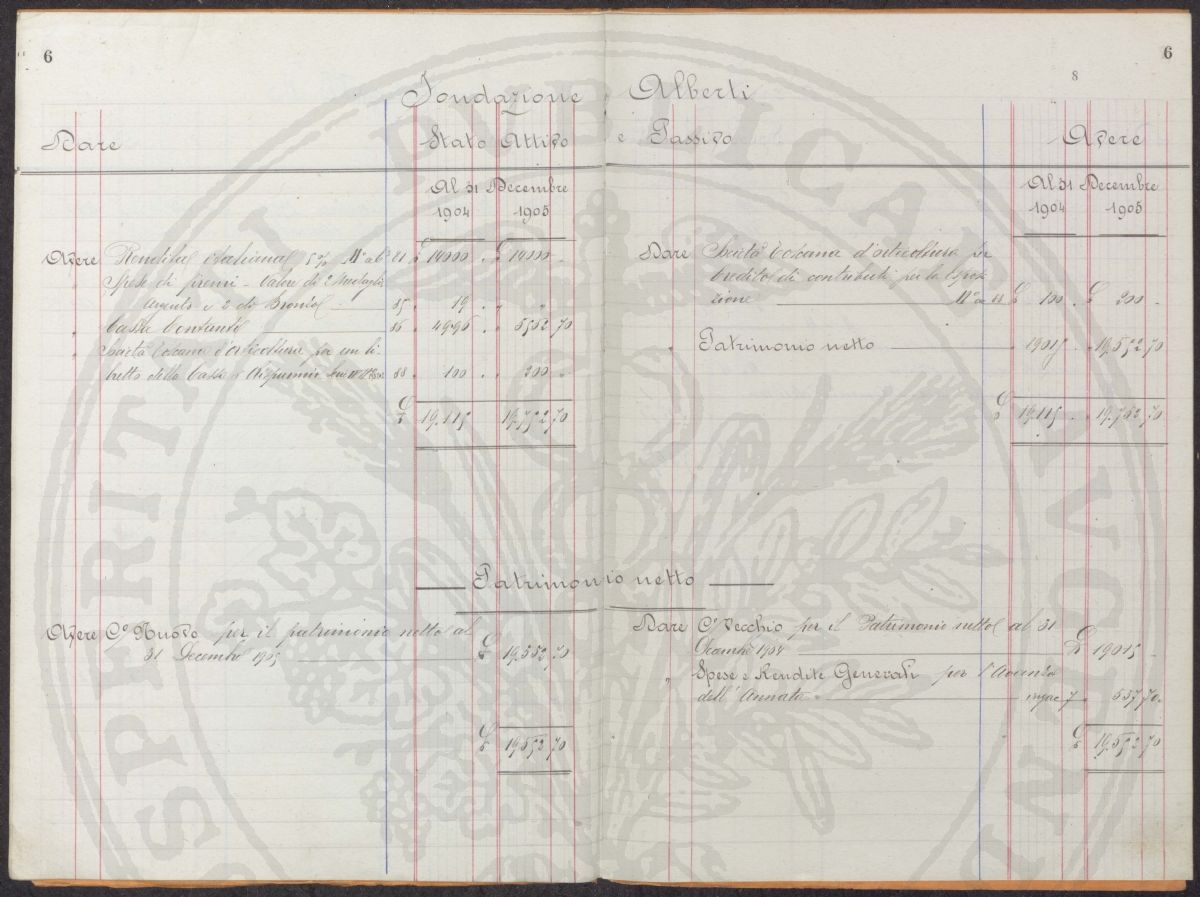 6
6
8
Fondazione Alberti
Dare Stato Attivo e Passivo Avere
Al 31 Decembre
1904 1905
Avere Rendita Italiana 5% N° a b° 81 £ 14000 . £ 14000 .
Spese di premi - Valore di 2 Medaglie
argento e 2 di Bronzo 85 19 . " "
" Cassa Contanti 86 4996 . 5552 70
" Società Toscana d'orticultura per un li-
bretto della Cassa di Risparmio 88 100 . 200 .
£ 19.115 . 19.752 70
Al 31 Decembre
1904 1905
Dare Società Toscana d'orticultura per
Credito di contributi per la Esposi-
zione N° 88 £ 100 . £ 200 .
" Patrimonio netto 19015 . 19.552 70
£ 19.115 . 19.752 70
Patrimonio netto
Avere C° Nuovo per il patrimonio netto al
31 Decembre 1905 £ 19.552 70
£ 19.552 70
Dare C° Vecchio per il Patrimonio netto al 31
Decembre 1904 £ 19015 .
" Spese e Rendite Generali per l'Avanzo
dell'Annata 7 537 70
£ 19.552 70
SPERITI PVBLICAE